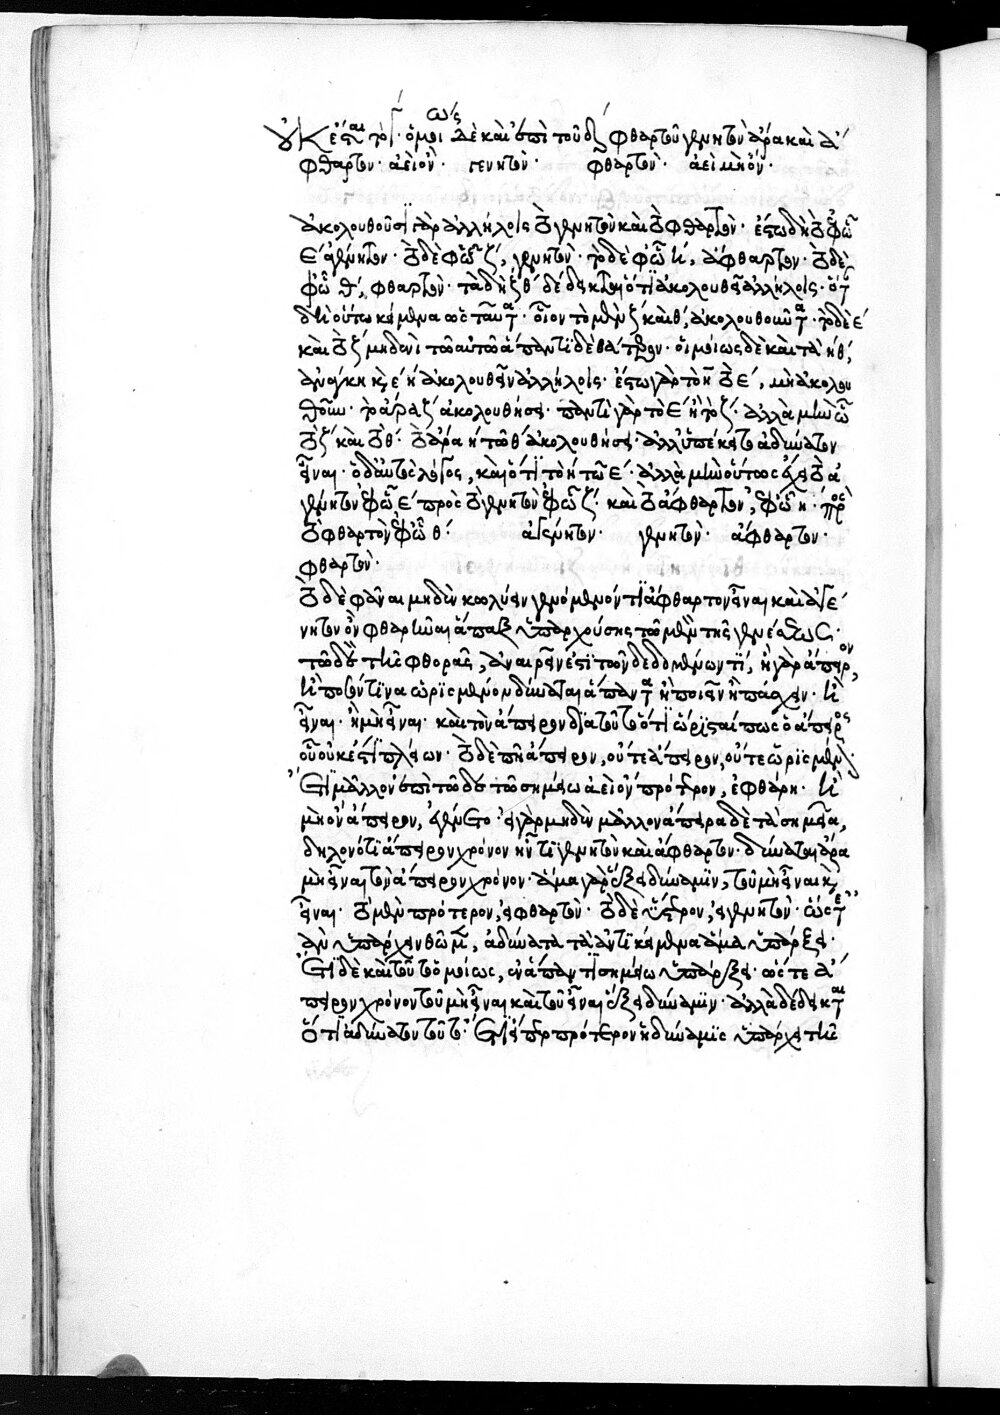 οὐκ ἔσται τὸ γ· ὁμοίως δὲ καὶ ἐπὶ τοῦ δ, φθαρτοῦ γενητὸν ἄρα καὶ ἄ
φθαρτον· ἀεὶ ὄν· γενητόν· φθαρτόν· ἀεὶ μὴ ὄν·
ἀκολουθοῦσι παρ ἀλλήλοις τὸ γενητὸν καὶ τὸ φθαρτὸν· ἔστω δὴ τὸ ἐφ ὧ
ε ἀγένητον· τὸ δὲ ἐφ ὧ ζ, γενητόν· τὸ δὲ ἐφ ὧ η, ἄφθαρτον· τὸ δὲ
ἐφ ὧ θ, φθαρτόν· τὰ δὴ ζθ δέδεικται ὅτι ἀκολουθεῖ ἀλλήλοις· ὅταν
δὴ οὕτω κείμενα ὡς ταῦτα· οἷον τὸ μὲν ζ καὶ θ, ἀκολουθοῦντα· τὸ δὲ ε
καὶ τὸ ζ μηδενὶ τῶ αὐτῶ ἅπαντι δὲ θάτερον· ὁμοίως δὲ καὶ τὰ ηθ,
ἀνάγκη καὶ ε η ἀκολουθεῖν ἀλλήλοις· ἔστω γὰρ τὸ η τὸ ε, μὴ ἀκολου
θοῦν· τὸ ἄρα ζ ἀκολουθήσει· παντὶ γὰρ τὸ ε ἢ τὸ ζ· ἀλλὰ μὴν ὧ
τὸ ζ καὶ τὸ θ· τὸ ἄρα η τῶ θ ἀκολουθήσει· ἀλλ ὑπέκειτο ἀδύνατον
εἶναι· ὁ δ αὐτὸς λόγος, καὶ ὅτι τὸ η τῶ ε· ἀλλὰ μὴν οὕτως ἔχει τὸ ἀ
γένητον ἐφ ὧ ε πρὸς τὸ γενητὸν ἐφ ὧ ζ· καὶ τὸ ἄφθαρτον, ἐφ ὧ η· πρὸς
τὸ φθαρτὸν ἐφ ὧ θ· ἀγένητον· γενητὸν· ἄφθαρτον·
φθαρτόν·
τὸ δὲ φάναι μηδὲν κωλύειν γενόμενόν τι ἄφθαρτον εἶναι καὶ ἀγέ
νητον ὂν φθαρῆναι ἅπαξ ὑπαρχούσης τῶ μὲν τῆς γενέσεως·
τῶ δὲ τῆς φθορᾶς, ἀναιρεῖν ἐστὶ τῶν δεδομένων τι, ἢ γὰρ ἄπειρον,
ἢ ποσόν τινα ὡρισμένον δύναται ἅπαντα ἢ ποιεῖν ἢ πάσχειν· ἢ
εἶναι· ἢ μὴ εἶναι· καὶ τὸν ἄπειρον διὰ τοῦτο ὅτι ὥρισταί πως ὁ ἄπειρος
οὗ οὐκ ἔστι πλείων· τὸ δὲ πῆ ἄπειρον, οὔτε ἄπειρον, οὔτε ὡρισμένον·
ἔτι μᾶλλον ἐπὶ τῶδε τῶ σημείω ἀεὶ ὂν πρότερον, ἐφθάρη· ἢ
μὴ ὂν ἄπειρον, ἐγένετο· εἰ γὰρ μηδὲν μᾶλλον ἄπειρα δὲ τὰ σημεῖα,
δῆλον ὅτι ἄπειρον χρόνον ἦν τι γενητὸν καὶ ἄφθαρτον· δύναται ἄρα
μὴ εἶναι τὸν ἄπειρον χρόνον· ἅμα γὰρ ἕξει δύναμιν, τοῦ μὴ εἶναι καὶ
εἶναι· τὸ μὲν πρότερον, εἰ φθαρτόν· τὸ δὲ ὕστερον, εἰ γενητόν· ὥστε
ἂν ὑπάρχειν θῶμεν, ἀδύνατα τὰ ἀντικείμενα ἅμα ὑπάρξει·
ἔτι δὲ καὶ τοῦτο ὁμοίως, ἐν ἅπαντι σημείω ὑπάρξει· ὥστε ἄ
πειρον χρόνον τοῦ μὴ εἶναι καὶ τοῦ εἶναι ἕξει δύναμιν· ἀλλὰ δέδεικται
ὅτι ἀδύνατον τοῦτο· ἔτι εἴπερ πρότερον ἡ δύναμις ὑπάρχει τῆς